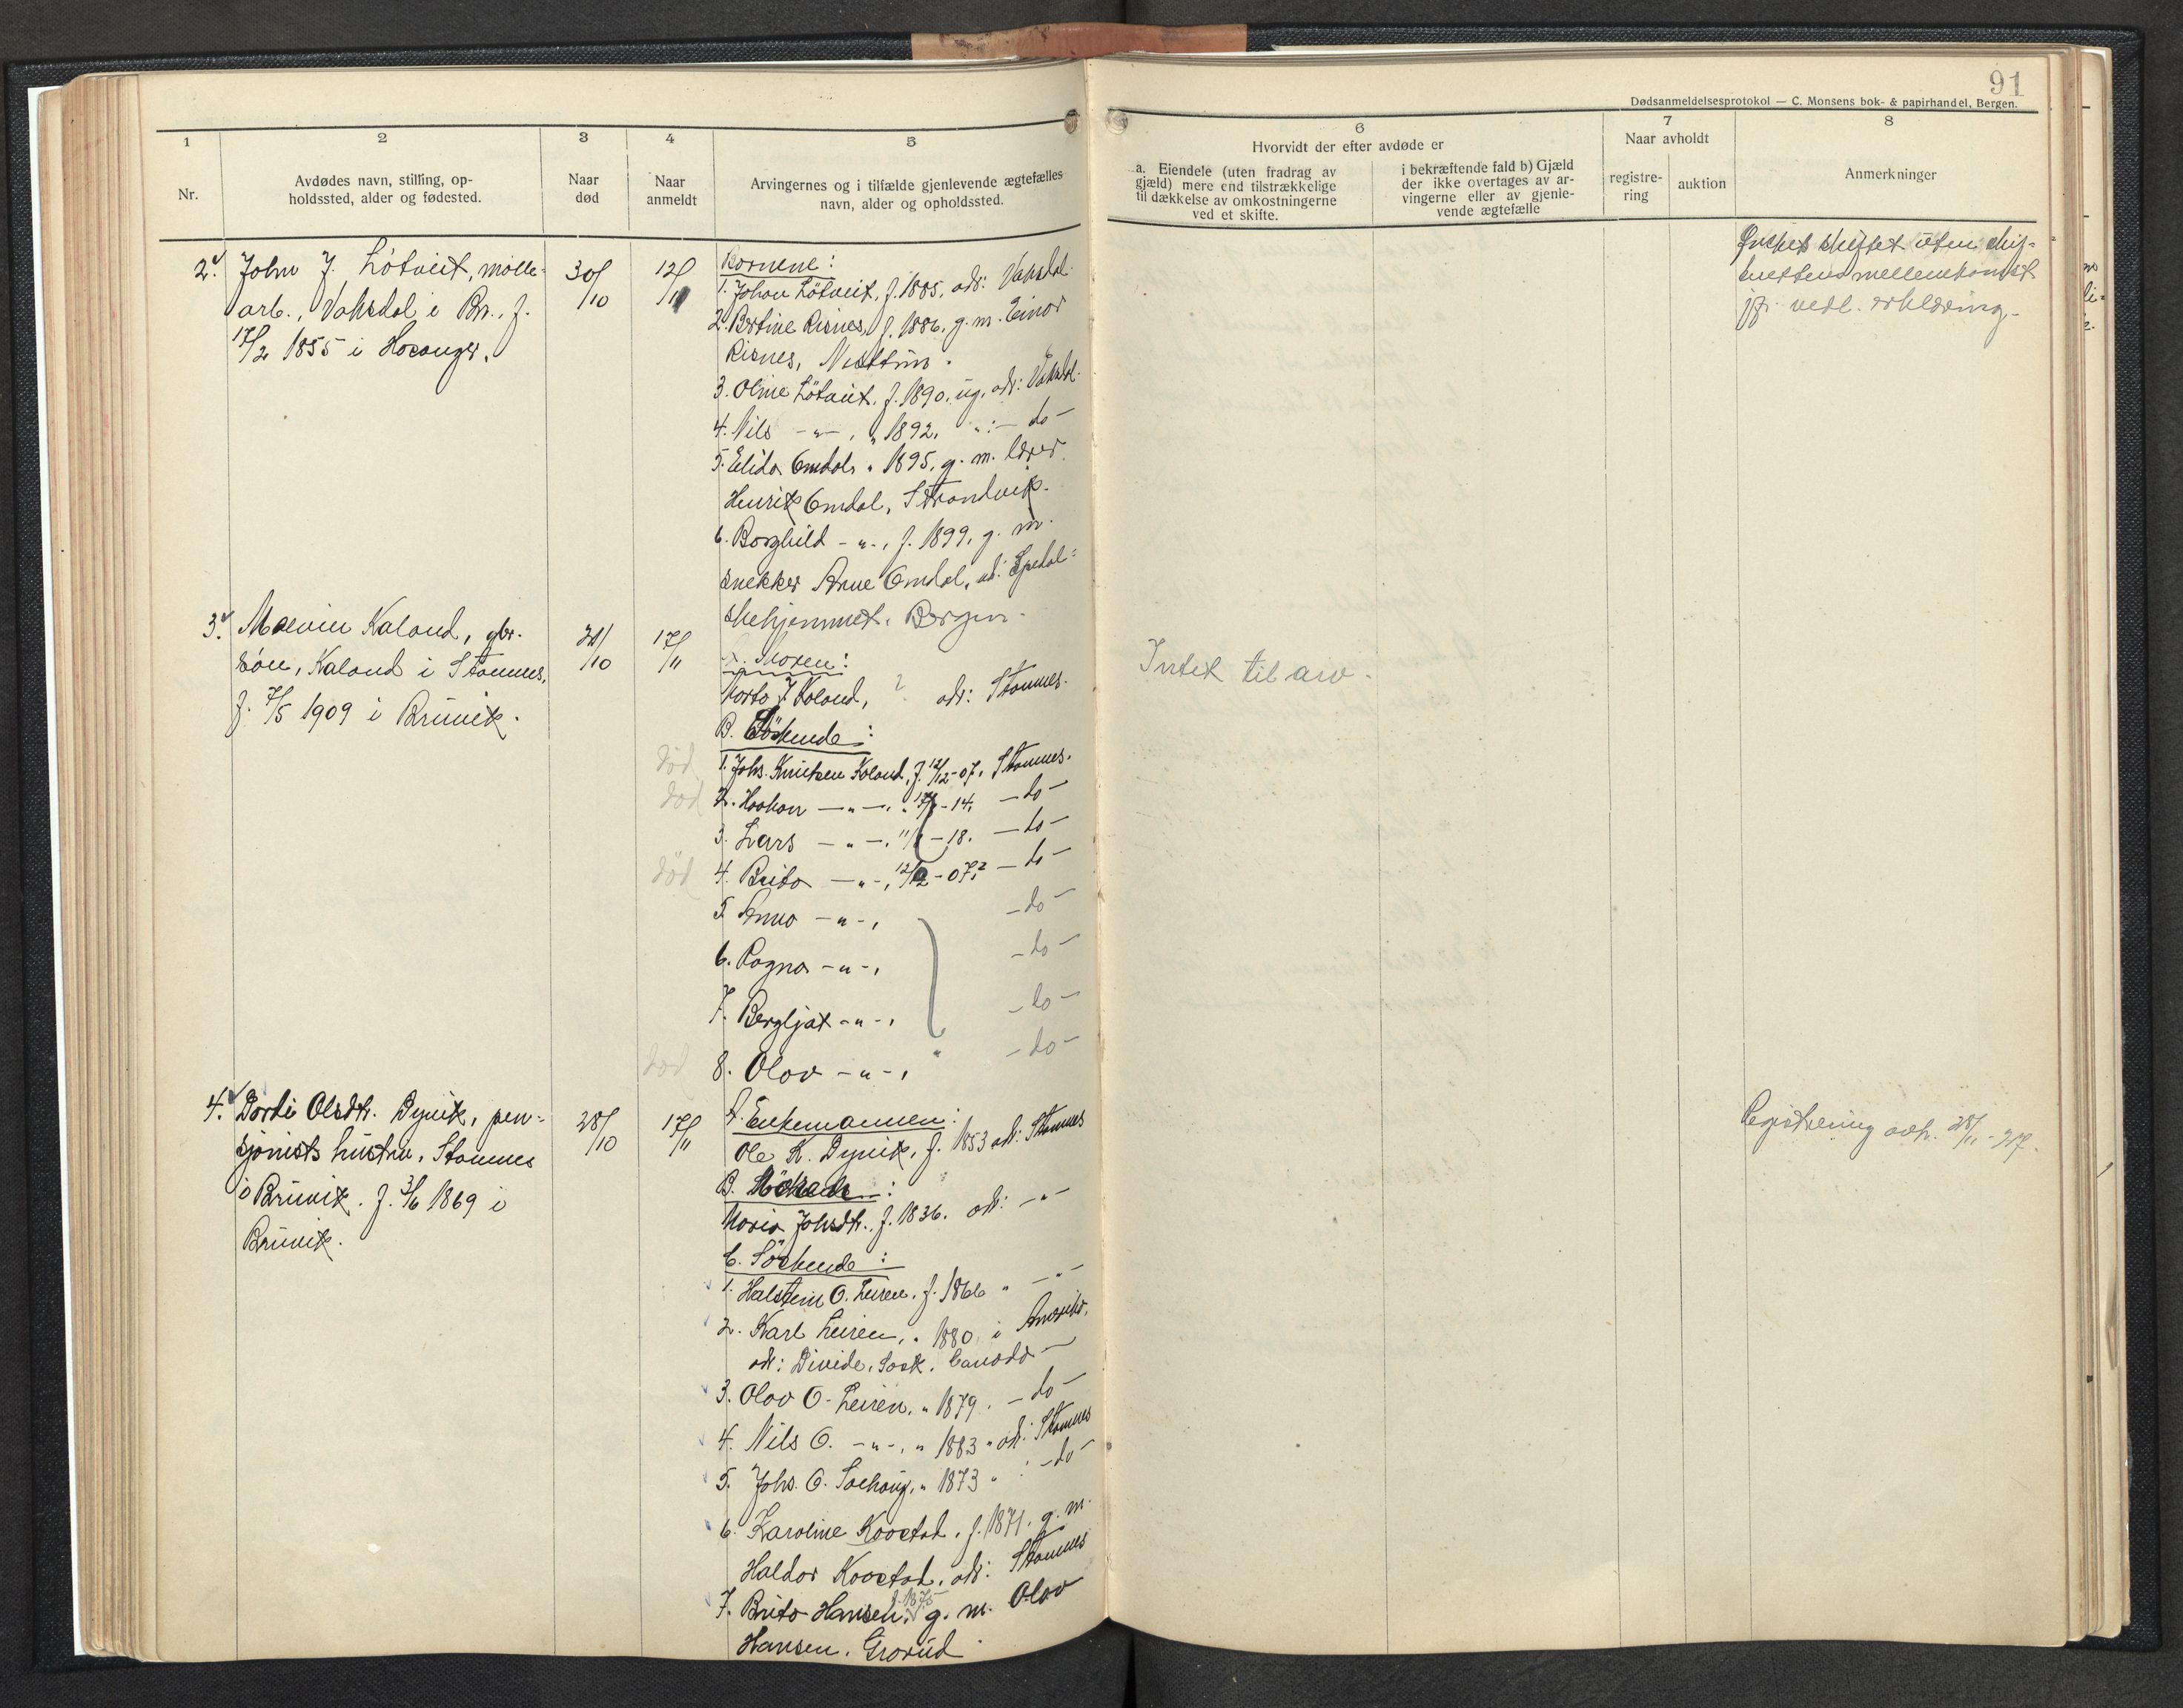 91
Dødsanmeldelsesprotokol — C. Monsens bok- & papirhandel, Bergen.
1
2
3
4
5
6
7
8
Nr.
Avdødes navn, stilling, op-
holdssted, alder og fødested.
Naar
død
Naar
anmeldt
Arvingernes og i tilfælde gjenlevende ægtefælles
navn, alder og opholdssted.
Hvorvidt der efter avdøde er
a. Eiendele (uten fradrag av
gjæld) mere end tilstrækkelige
til dækkelse av omkostningerne
ved et skifte.
i bekræftende fald b) Gjæld
der ikke overtages av ar-
vingerne eller av gjenle-
vende ægtefælle
Naar avholdt
registre-
ring
auktion
Anmerkninger
2. John J. Lötveit, mölle-
arb., Vaksdal i Br., f.
17/2 1855 i Hosanger.
30/10
12/11
Börnene:
1. Johan Lötveit, f. 1885, adr: Vaksdal.
2. Bertine Risnes, f. 1886, g. m. Einar
Risnes, Nesttun.
3. Oline Lötveit, f. 1890, ug. adr: Vaksdal.
4. Nils -"-, " 1892. ":- do -
5. Elida Omdal, " 1895, g. m. lærer
Henrik Omdal, Strandvik.
6. Borghild -"-, f. 1899, g. m.
snekker Arne Omdal, ad: Spedal-
skehjemmet, Bergen.
Ønsket skiftet uten skif-
terettens mellemkomst
jfr. vedl. erklæring.
3. Kaland, gbr.
sön, Kaland i Stamnes,
f. 7/5 1909 i Bruvik.
/10
17/11
Moren:
Marta J. Kaland, ? adr: Stamnes.
B. Söskende:
död 1. Johs. Knutsen Kaland, f. 12/12-07, Stamnes.
död 2. Haakon —"—, " -14, — do —
3. Lars —"—, 11/ -18. — do —
död 4. Brita —"-, 12/12-07? — do —
5. Anna -"-, - do -
6. Ragna -"-, - do -
7. Bergljot -"-, - do -
död 8. Olav -"-, " - do -
Intet til arv.
4. Dorti Olsdtr. Dyvik, pen-
sjonists hustru, Stamnes
i Bruvik. f. 3/6 1869 i
Bruvik.
28/10
17/11
A. Enkemannen:
Ole K. Dyvik, f. 1853 adr: Stamnes
B.
Maria Johsdtr., f. 1836. adr: -"-
C. Söskende:
1. Halstein O. Leiren, f. 1866 " -"-
2. Karl Leiren, " 1880, i Amerika,
adr: Divide, Sask. Canada —
3. Olav O. Leiren, " 1879. - do -
4. Nils O. -"-, " 1883 " adr: Stamnes
5. Johs. O. " 1873 " : - do -
6. Karoline f. 1871. g. m.
Haldor adr: Stamnes
7. Brita Hansen, f. 1875 g. m. Olav
Hansen, Grorud.
Registrering avh. 28/11-27.